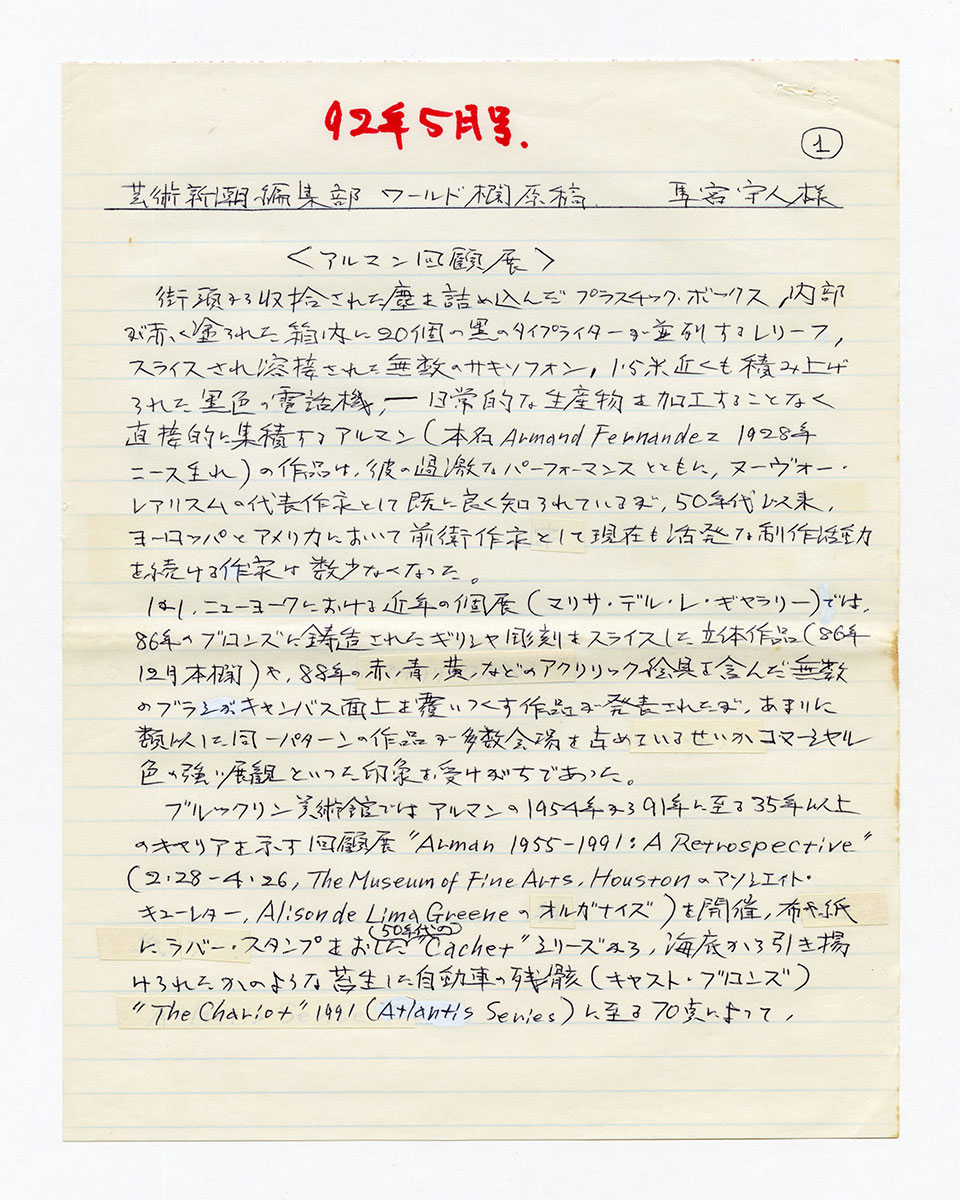 92年5月号.
1
芸術新潮編集部 ワールド欄原稿. 馬宮守人様
<アルマン回顧展>
街頭から収拾された塵を詰め込んだプラスチック・ボックス,内部
が赤く塗られた箱内に20個の黒のタイプライターが並列するレリーフ,
スライスされ溶接された無数のサキソフォン,1.5米近くも積み上げ
られた黒色の電話機,ー日常的な生産物を加工することなく
直接的に集積するアルマン(本名Armand Fernandez 1928年
ニース生れ)の作品は,彼の過激なパーフォーマンスとともに,ヌーヴォー・
レアリスムの代表作家として既に良く知られているが,50年代以来,
ヨーロッパとアメリカにおいて前衛作家として現在も活発な制作活動
を続ける作家は数少なくなった。
しかし,ニューヨークにおける近年の個展(マリサ・デル・レ・ギャラリー)では,
86年のブロンズに鋳造されたギリシャ彫刻をスライスした立体作品(86年
12月本欄)や,88年の赤,青,黄,などのアクリリック絵具を含んだ無数
のブラシがキャンバス面上を覆いつくす作品が発表されたが,あまりに
類似した同一パターンの作品が多数会場を占めているせいかコマーシャル
色の強い展観といった印象を受けがちであった。
ブルックリン美術館ではアルマンの1954年から91年に至る35年以上
のキャリアを示す回顧展"Arman 1955-1991: A Retrospective"
(2・28-4・26, The Museum of Fine Arts, Houstonのアソシエイト・
キューレター, Alison de Lima Greeneのオルガナイズ)を開催,布や紙
にラバー・スタンプをおした(50年代の)"Cachet"シリーズから,海底から引き揚
げられたかのような苔生した自動車の残骸(キャスト・ブロンズ)
"The Chariot" 1991 (Atlantis Series)に至る70点によって,